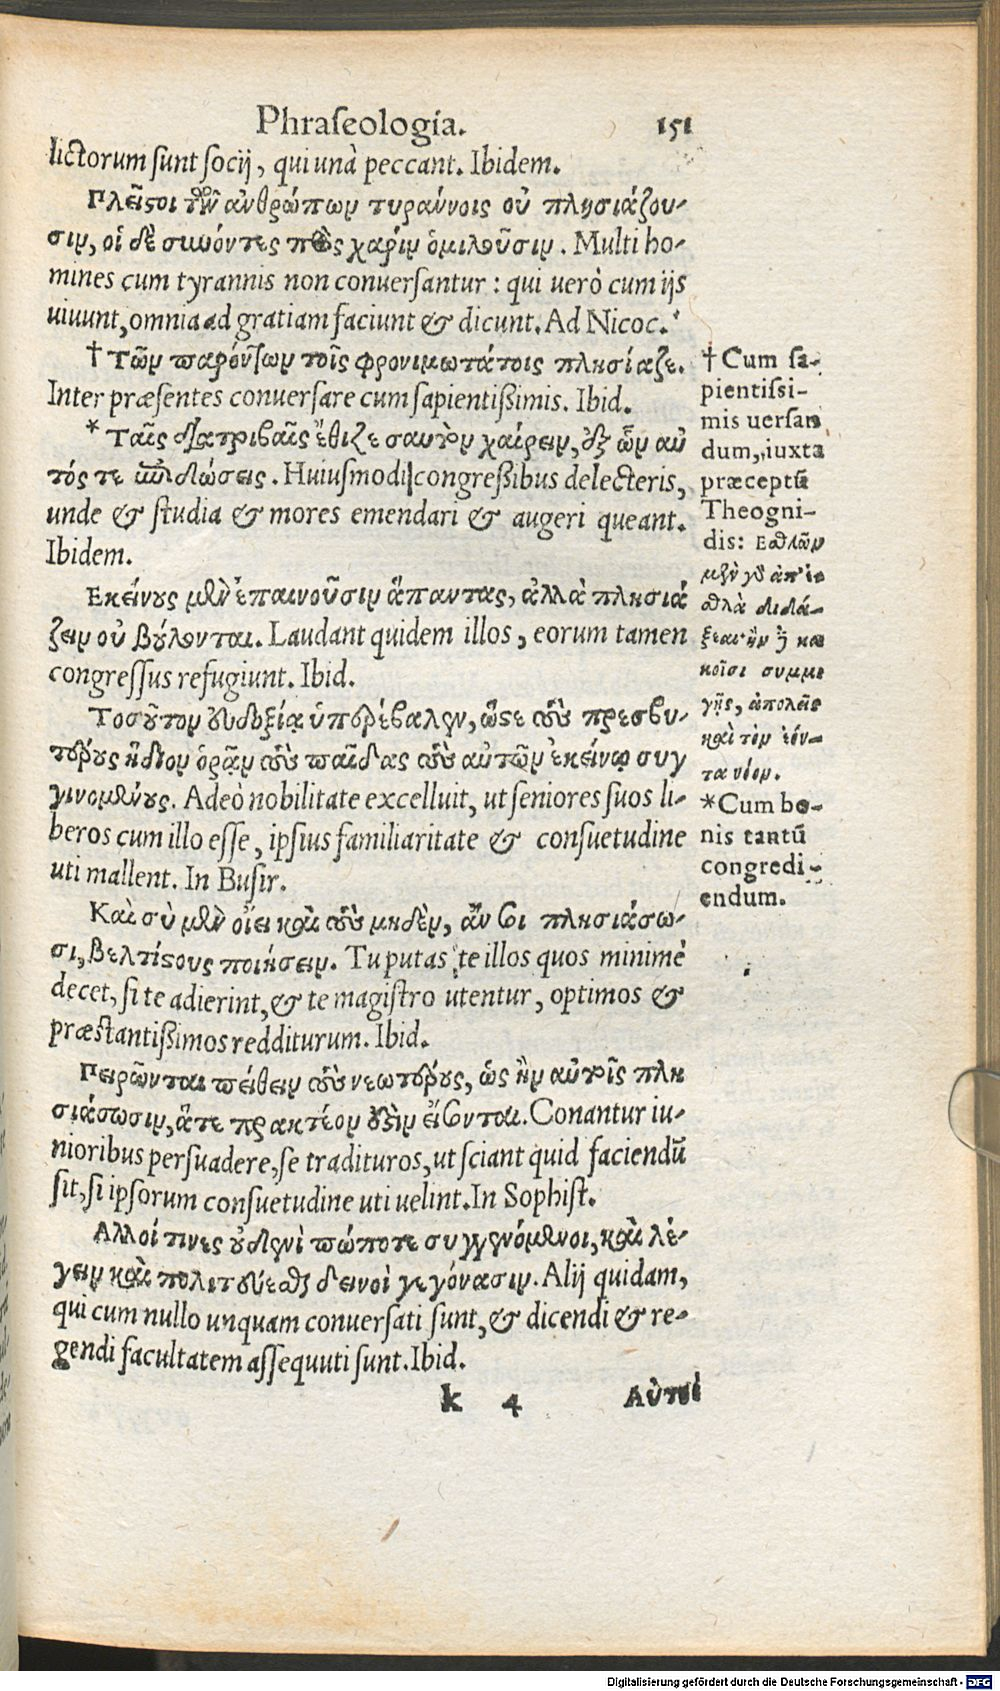 Phraſeologia. 151
lictorum ſunt ſocij, qui unà peccant. Ibidem.
Πλεῖστοι τῶν ἀνθρώπων τυράννοις οὐ πλησιάζου-
σιν, οἱ δὲ συνόντες πρὸς χάριν ὁμιλοῦσιν. Multi ho-
mines cum tyrannis non conuerſantur: qui uerò cum ijs
uiuunt, omnia ad gratiam faciunt & dicunt. Ad Nicoc.
† Τῶν παρόντων τοῖς φρονιμωτάτοις πλησίαζε.
Inter præſentes conuerſare cum ſapientiſſimis. Ibid.
* Ταῖς διατριβαῖς ἔθιζε σαυτὸν χαίρειν, ἐξ ὧν αὐ
τός τε ἐπιδώσεις. Huiuſmodi congreſſibus delecteris,
unde & ſtudia & mores emendari & augeri queant.
Ibidem.
Εκείνους μὲν ἐπαινοῦσιν ἅπαντας, ἀλλὰ πλησιά
ζειν οὐ βούλονται. Laudant quidem illos, eorum tamen
congreſſus refugiunt. Ibid.
Τοσοῦτον εὐδοξίᾳ ὑπερέβαλεν, ὥστε τοὺς πρεσβυ-
τέρους ἥδιον ὁρᾷν τοὺς παῖδας τοὺς αὐτῶν ἐκείνῳ συγ
γινομένους. Adeò nobilitate excelluit, ut ſeniores ſuos li-
beros cum illo eſſe, ipſius familiaritate & conſuetudine
uti mallent. In Buſir.
Καὶ σὺ μὲν οἴει καὶ τοὺς μηδὲν, ἄν σοι πλησιάσω-
σι, βελτίστους ποιήσειν. Tu putas te illos quos minimè
decet, ſi te adierint, & te magiſtro utentur, optimos &
præſtantiſſimos redditurum. Ibid.
Πειρῶνται πείθειν τοὺς νεωτέρους, ὡς ἢν αὐτοῖς πλη
σιάσωσιν, ἅτε πρακτέον ἐστὶν εἴσονται. Conantur iu-
nioribus perſuadere, ſe tradituros, ut ſciant quid faciendū
ſit, ſi ipſorum conſuetudine uti uelint. In Sophiſt.
Αλλοί τινες οὐδενὶ πώποτε συγγενόμενοι, καὶ λέ-
γειν καὶ πολιτεύεσθαι δεινοὶ γεγόνασιν. Alij quidam,
qui cum nullo unquam conuerſati ſunt, & dicendi & re-
gendi facultatem aſſequuti ſunt. Ibid.
k 4 Αὐτοὶ
† Cum ſa-
pientiſſi-
mis uerſan
dum, iuxta
præceptū
Theogni-
dis: Εσθλῶν
μὲν γὰρ ἀπ' ἐ
σθλὰ διδά-
ξεαι· ἢν δὲ κα
κοῖσι συμμι
γῇς, ἀπολεῖς
καὶ τὸν ἐόν-
τα νόον.
*Cum bo-
nis tantū
congredi-
endum.
Digitalisierung gefördert durch die Deutsche Forschungsgemeinschaft - DFG